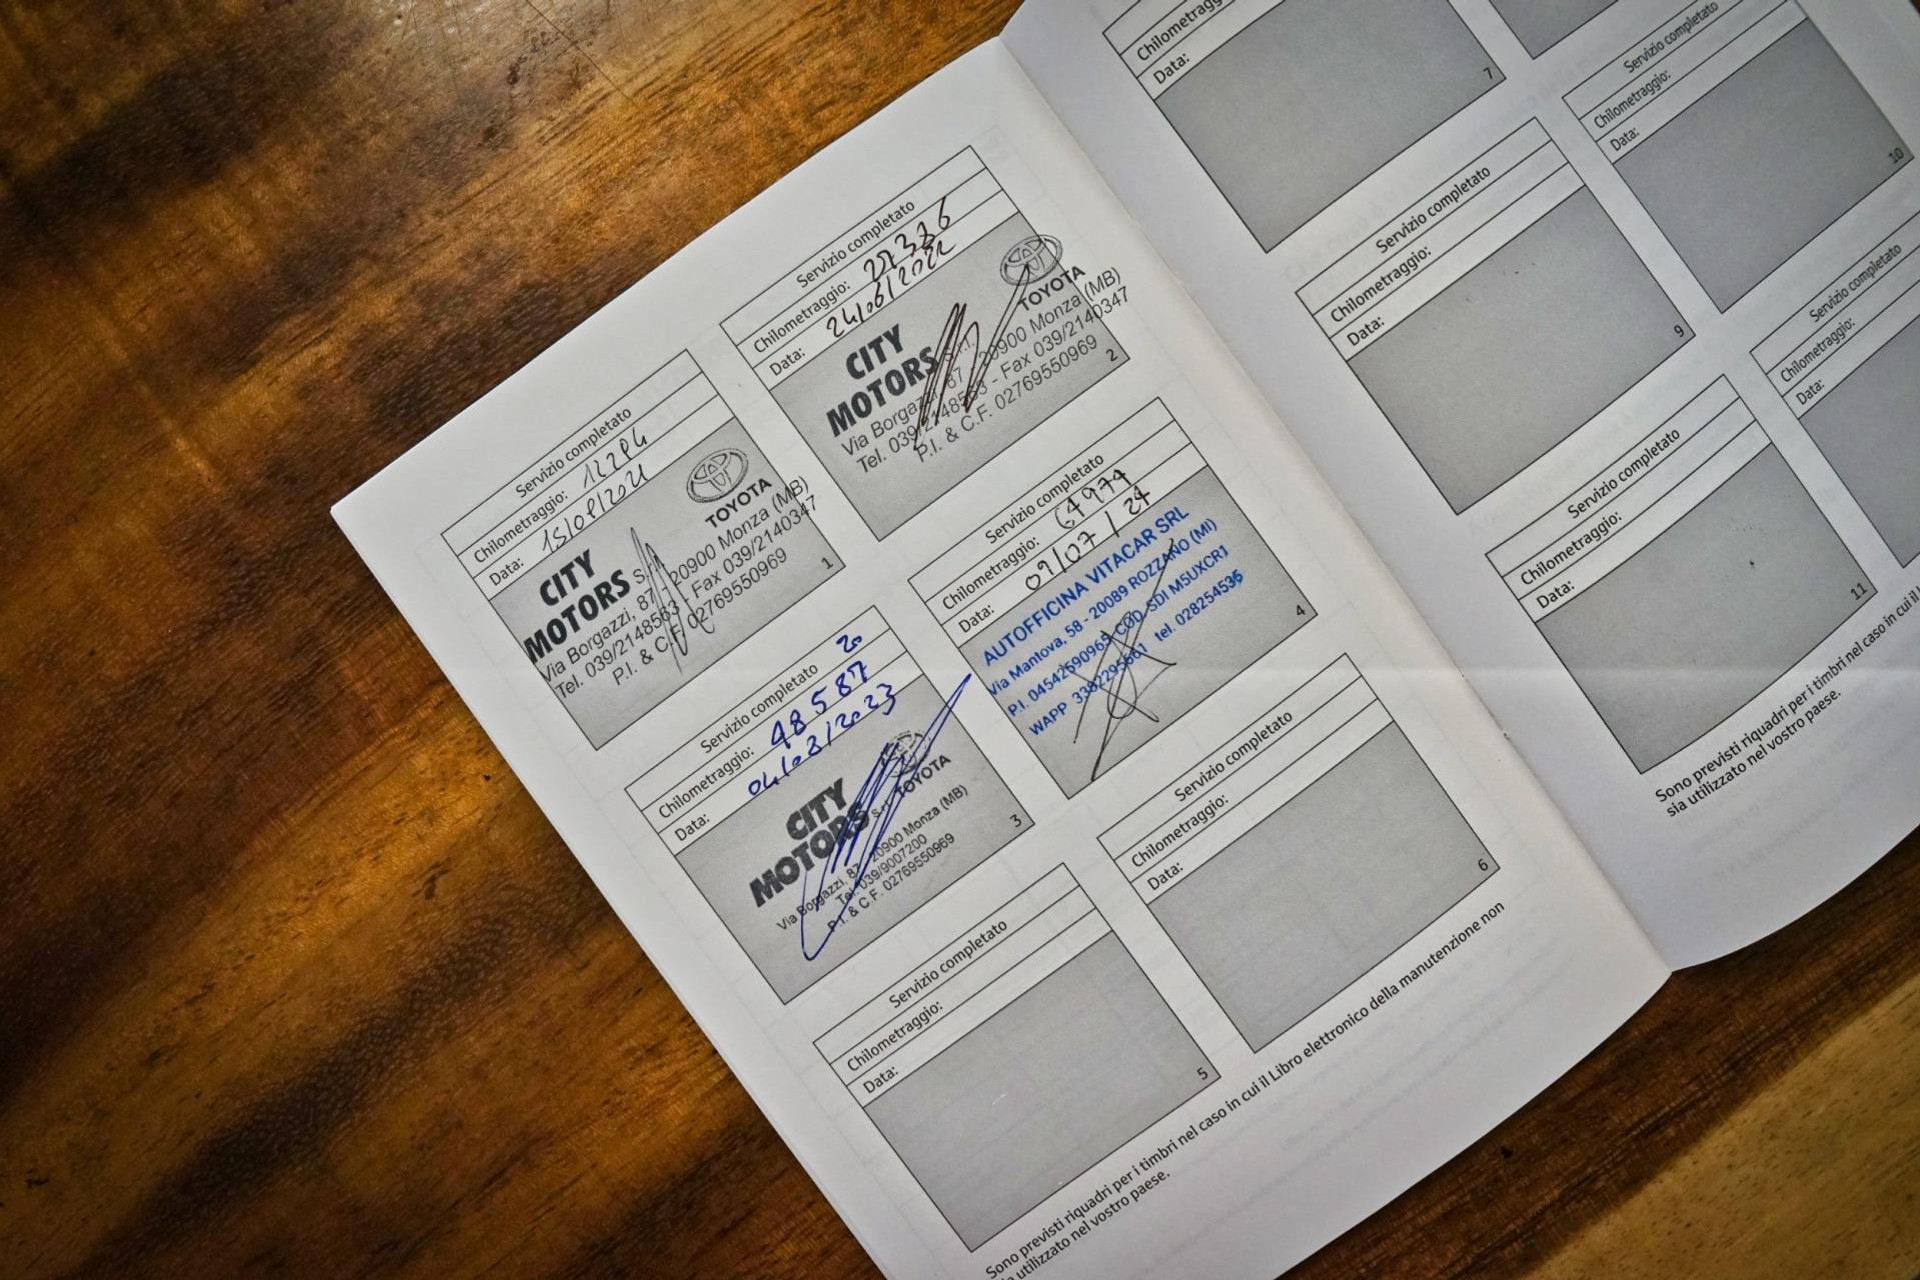 Servizio completato
Chilometraggio:
Data: 15/09/2021
TOYOTA
CITY
MOTORS S.r.l.
Via Borgazzi, 87 - 20900 Monza (MB)
Tel. 039/2148563 - Fax 039/2140347
P.I. & C.F. 02769550969
1
Servizio completato
Chilometraggio:
Data: 24/06/2022
TOYOTA
CITY
MOTORS S.r.l.
Via Borgazzi, 87 - 20900 Monza (MB)
Tel. 039/2148563 - Fax 039/2140347
P.I. & C.F. 02769550969
2
Servizio completato 20
Chilometraggio: 48587
Data:
TOYOTA
CITY
MOTORS S.r.l.
Via Borgazzi, 87 - 20900 Monza (MB)
Tel. 039/9007200
P.I. & C.F. 02769550969
3
Servizio completato
Chilometraggio:
Data: 09/07/24
AUTOFFICINA VITACAR SRL
Via Mantova, 58 - 20089 ROZZANO (MI)
P.I. 04542590965 COD. SDI M5UXCR1
WAPP 3382295661 tel. 028254535
4
Servizio completato
Chilometraggio:
Data:
5
Servizio completato
Chilometraggio:
Data:
6
Sono previsti riquadri per i timbri nel caso in cui il Libro elettronico della manutenzione non
sia utilizzato nel vostro paese.
Chilometraggio:
Data:
7
Servizio completato
Chilometraggio:
Data:
9
Servizio completato
Chilometraggio:
Data:
10
Servizio completato
Chilometraggio:
Data:
11
Servizio completato
Chilometraggio:
Data:
Sono previsti riquadri per i timbri nel caso in cui il
sia utilizzato nel vostro paese.